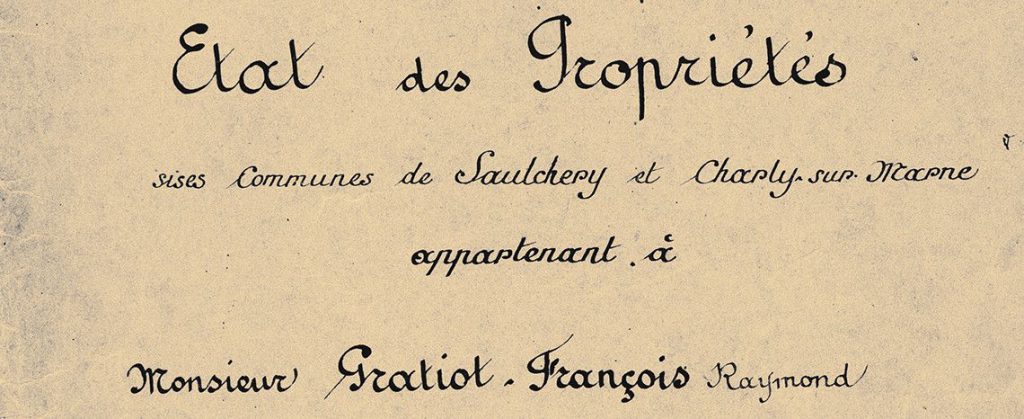 Etat des Propriétés
sises Communes de Saulchery et Charly-sur-Marne
appartenant à
Monsieur Gratiot-François Raymond